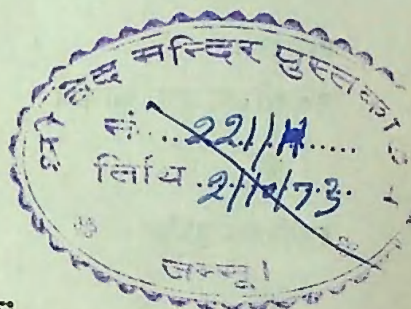 श्री वेद मन्दिर पुस्तकालय
नं.....221/H.....
तिथि.2/10/73.
जम्मू।